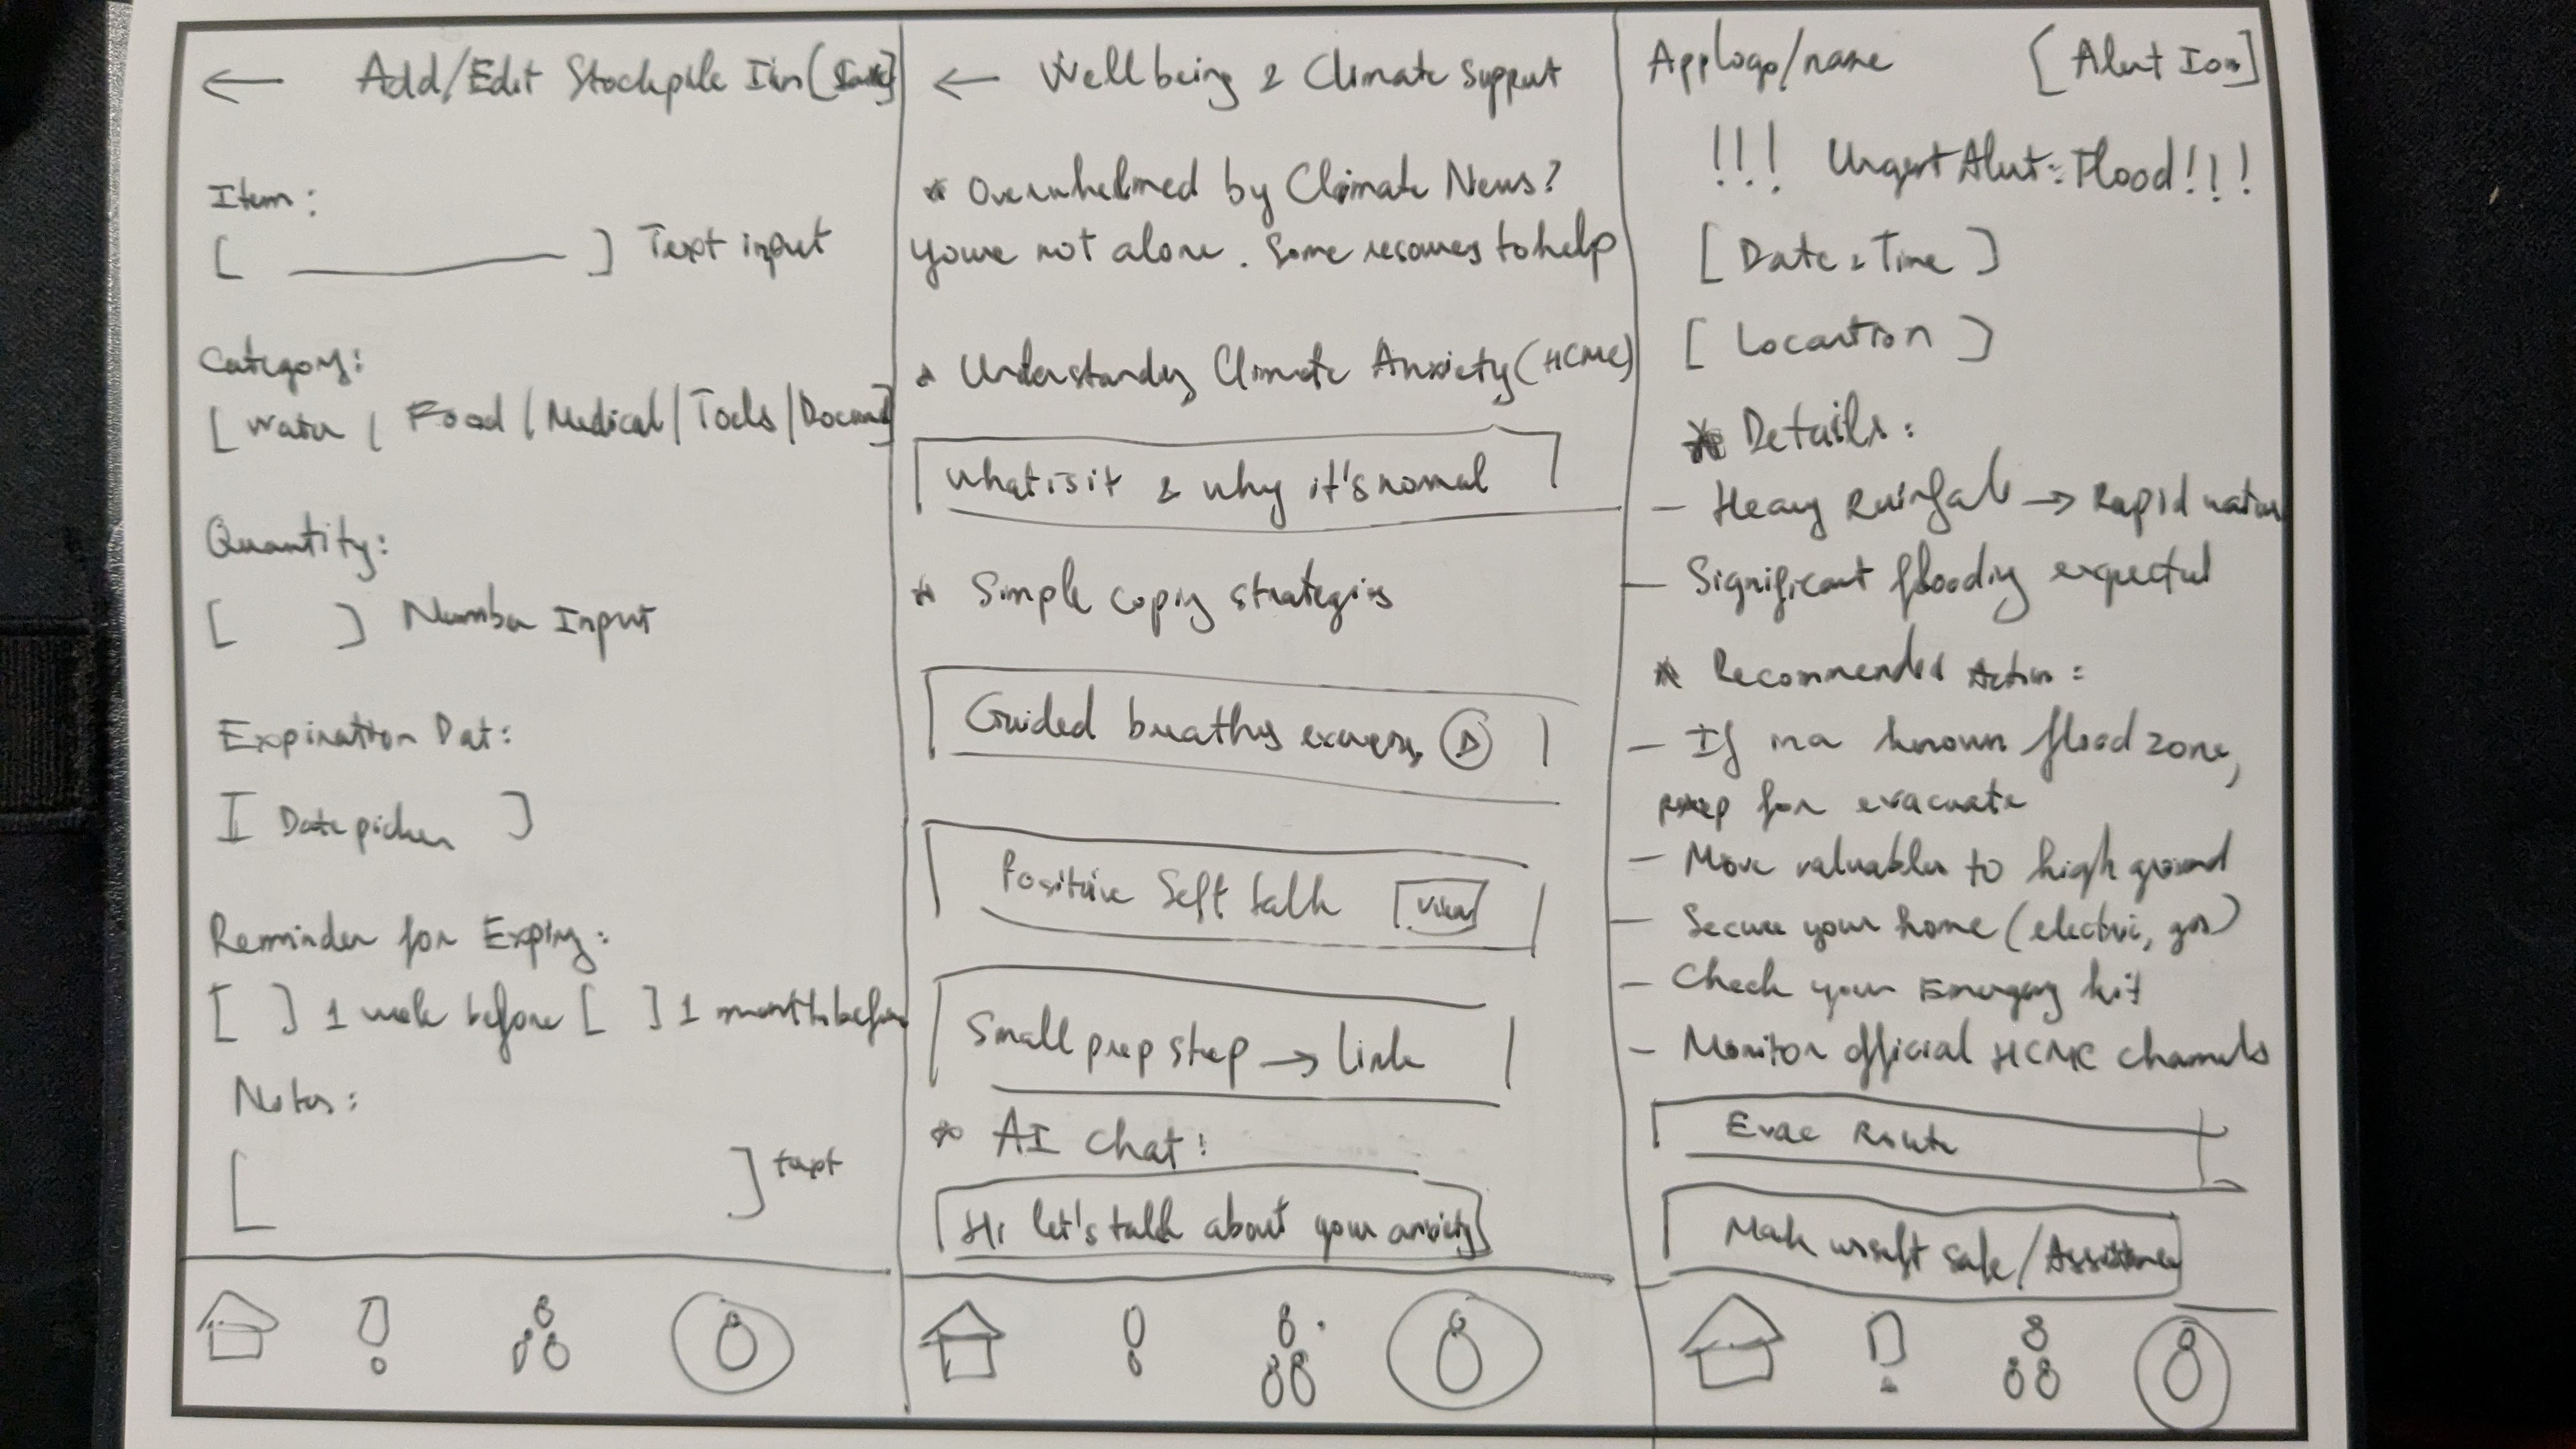 ← Add/Edit Stockpile
Item:
[ ______ ] Text input
Category:
[ Water / Food / Medical / Tools /
Quantity:
[ ] Number Input
Expiration Dat:
[ Date picker ]
Reminder for Expiry:
[ ] 1 week before [ ] 1 month before
Notes:
[ ] text
← Wellbeing & Climate Support
* Overwhelmed by Climate News?
You're not alone. Some resources to help
* Understanding Climate Anxiety (HCMC)
What is it & why it's normal
* Simple coping strategies
Guided breathing exercise
Positive Self talk [View]
Small prep step → link
* AI Chat:
Hi let's talk about your anxiety
App logo/name [Alert Icon]
!!! Urgent Alert: Flood!!!
[ Date & Time ]
[ Location ]
* Details:
- Heavy Rainfall → Rapid water
- Significant flooding expected
* Recommended Action:
- If in a known flood zone,
prep for evacuate
- Move valuables to high ground
- Secure your home (electri, gas)
- Check your Emergency kit
- Monitor official HCMC channels
Evac Route
Mark urself safe/Assistance